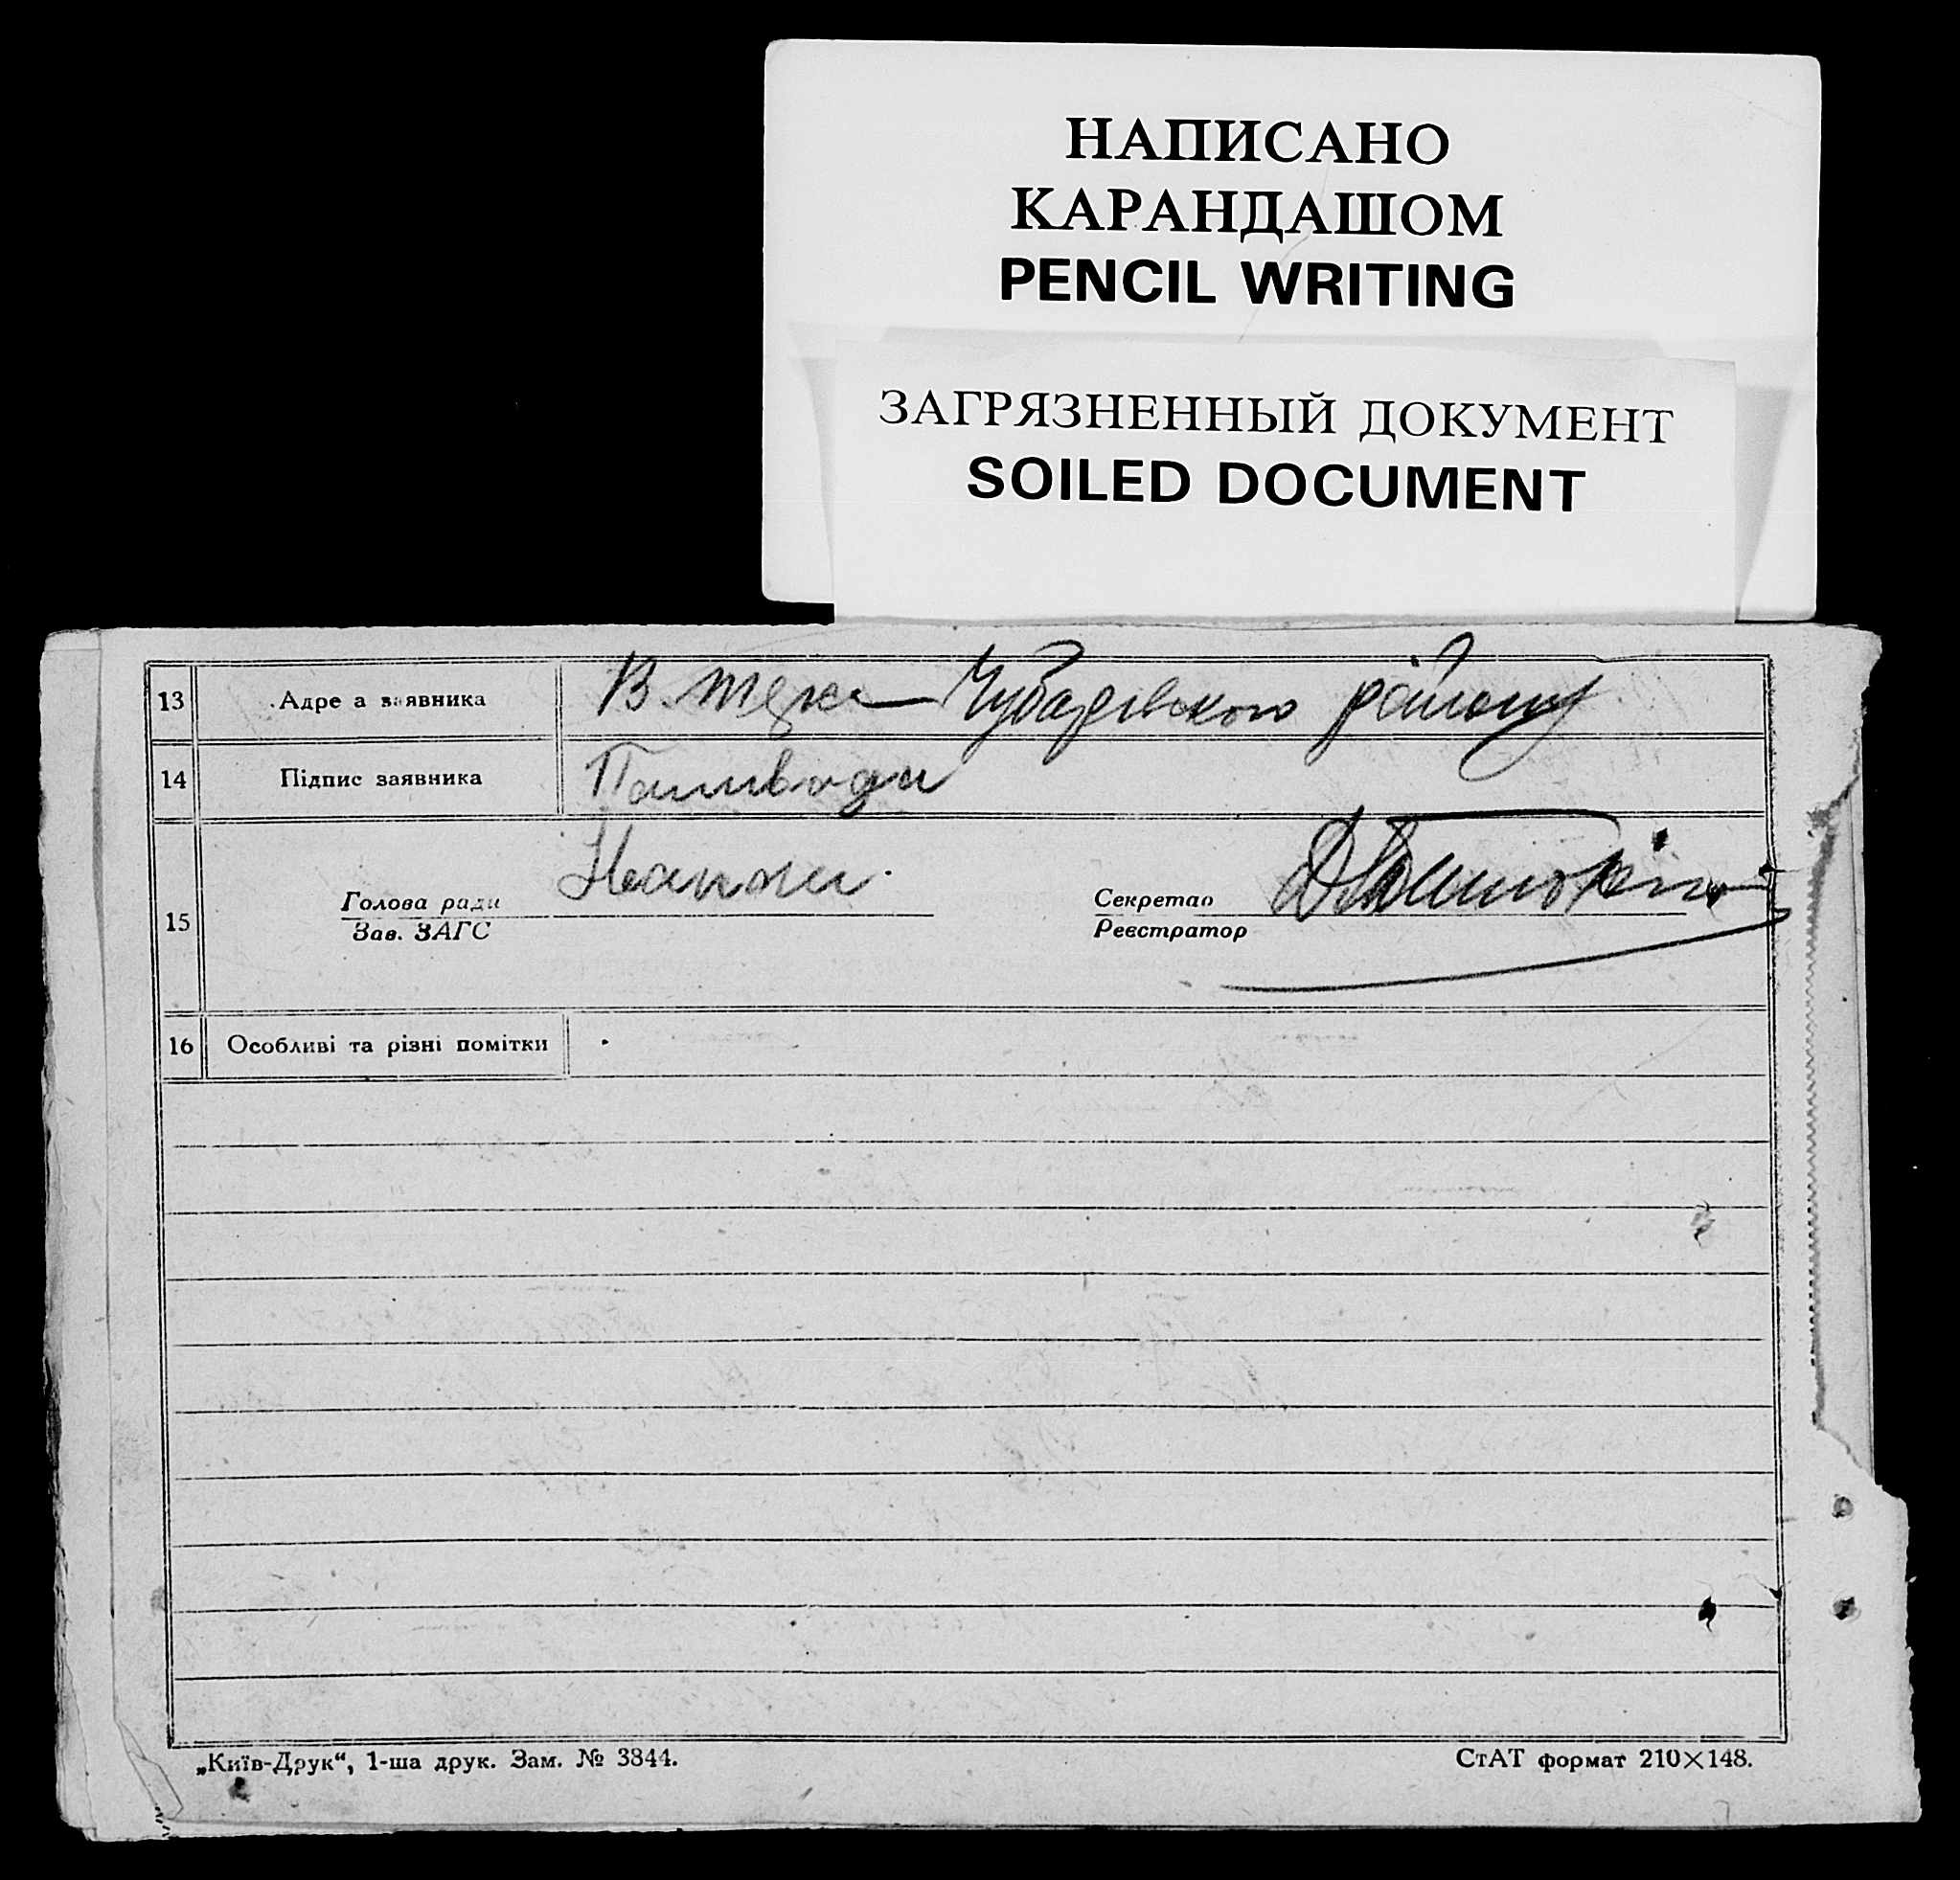 НАПИСАНО
КАРАНДАШОМ
PENCIL WRITING
ЗАГРЯЗНЕННЫЙ ДОКУМЕНТ
SOILED DOCUMENT
13 Адре а заявника Чубарівського району
14 Підпис заявника
15 Голова ради Секретар
Зав. ЗАГС Реєстратор
16 Особливі та різні помітки
„Київ-Друк“, 1-ша друк. Зам. № 3844. СтАТ формат 210×148.